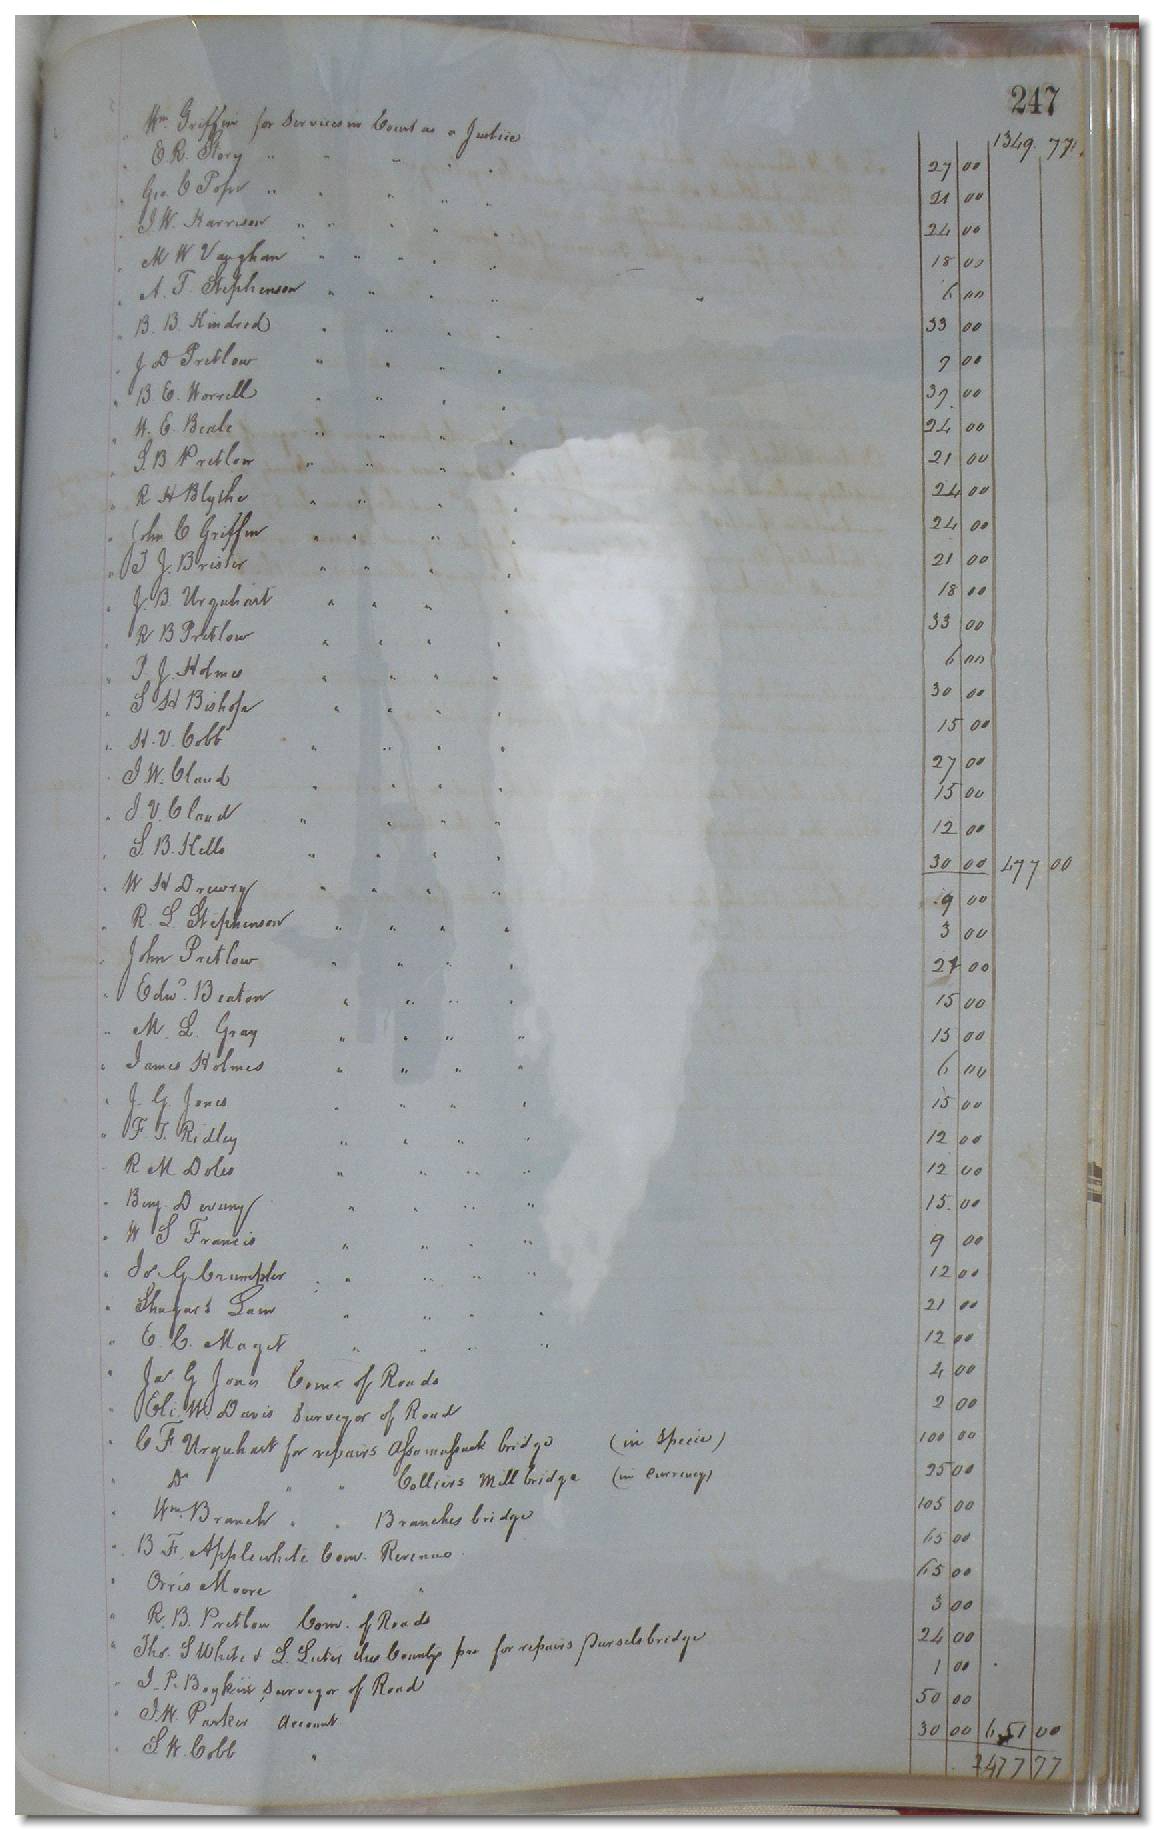 247
1349.77
" Wm Griffin for Services in Court as a Justice 27 00
" E.R. Story " " " 21 00
" Geo. C Pope " " " " " 24 00
" J.W. Harrison " " " " " 18 00
" M W Vaughan " " " " " 6 00
" A. T. Stephenson " " " " " 33 00
" B. B. Kindred " " " " 9 00
" J D Pretlow " " " " 39 00
" B E. Worrell " " " " 24 00
" W. C. Beale " " " " 21 00
" S B Pretlow " " " " 24 00
" R H Blythe " " " " 24 00
" John C Griffin " " " " 21 00
" T J. Brister " " " " 18 00
" J. B. Urquhart " " " " 33 00
" R B Pretlow " " " " 6 00
" P. J. Holmes " " " " 30 00
" S H Bishop " " " " 15 00
" H. V. Cobb " " " " 27 00
" J W. Claud " " " " 15 00
" J. V. Claud " " " " 12 00
" S. B. Kello " " " " 30 00 477 00
" W H Drewry " " " " 9 00
" R. L. Stephenson " " " " 3 00
" John Pretlow " " " " 21 00
" Edwd. Beaton " " " " 15 00
" M. L. Gray " " " " 15 00
" James Holmes " " " " 6 00
" J. G. Jones " " " " 15 00
" F. T. Ridley " " " " 12 00
" R M Doles " " " " 12 00
" Benj Devany " " " " 15.00
" W S Francis " " " " 9 00
" Js. G. Crumpler " " " " 12 00
" Shugars Lain " " " " 21 00
" E. C. Maget " " " " 12 00
" Jas G Jones Comr of Roads 4 00
" Eli W. Davis Surveyor of Road 2 00
" C F Urquhart for repairs Assamoosuck bridge (in Specie) 100 00
" Do " " Colliers Mill bridge (in currency) 25 00
" Wm. Branch " " Branches bridge 105 00
" B F. Applewhite Com. Revenue 65 00
" Orris Moore " " 65 00
" R. B. Pretlow Com. of Roads 3 00
" Thos. S White & L. Luter this County for repairs Pursels bridge 24 00
" J. P. Boykin Surveyor of Road 1 00
" J. W. Parker Account 50 00
" S. W. Cobb " 30 00 651 00
2477 77